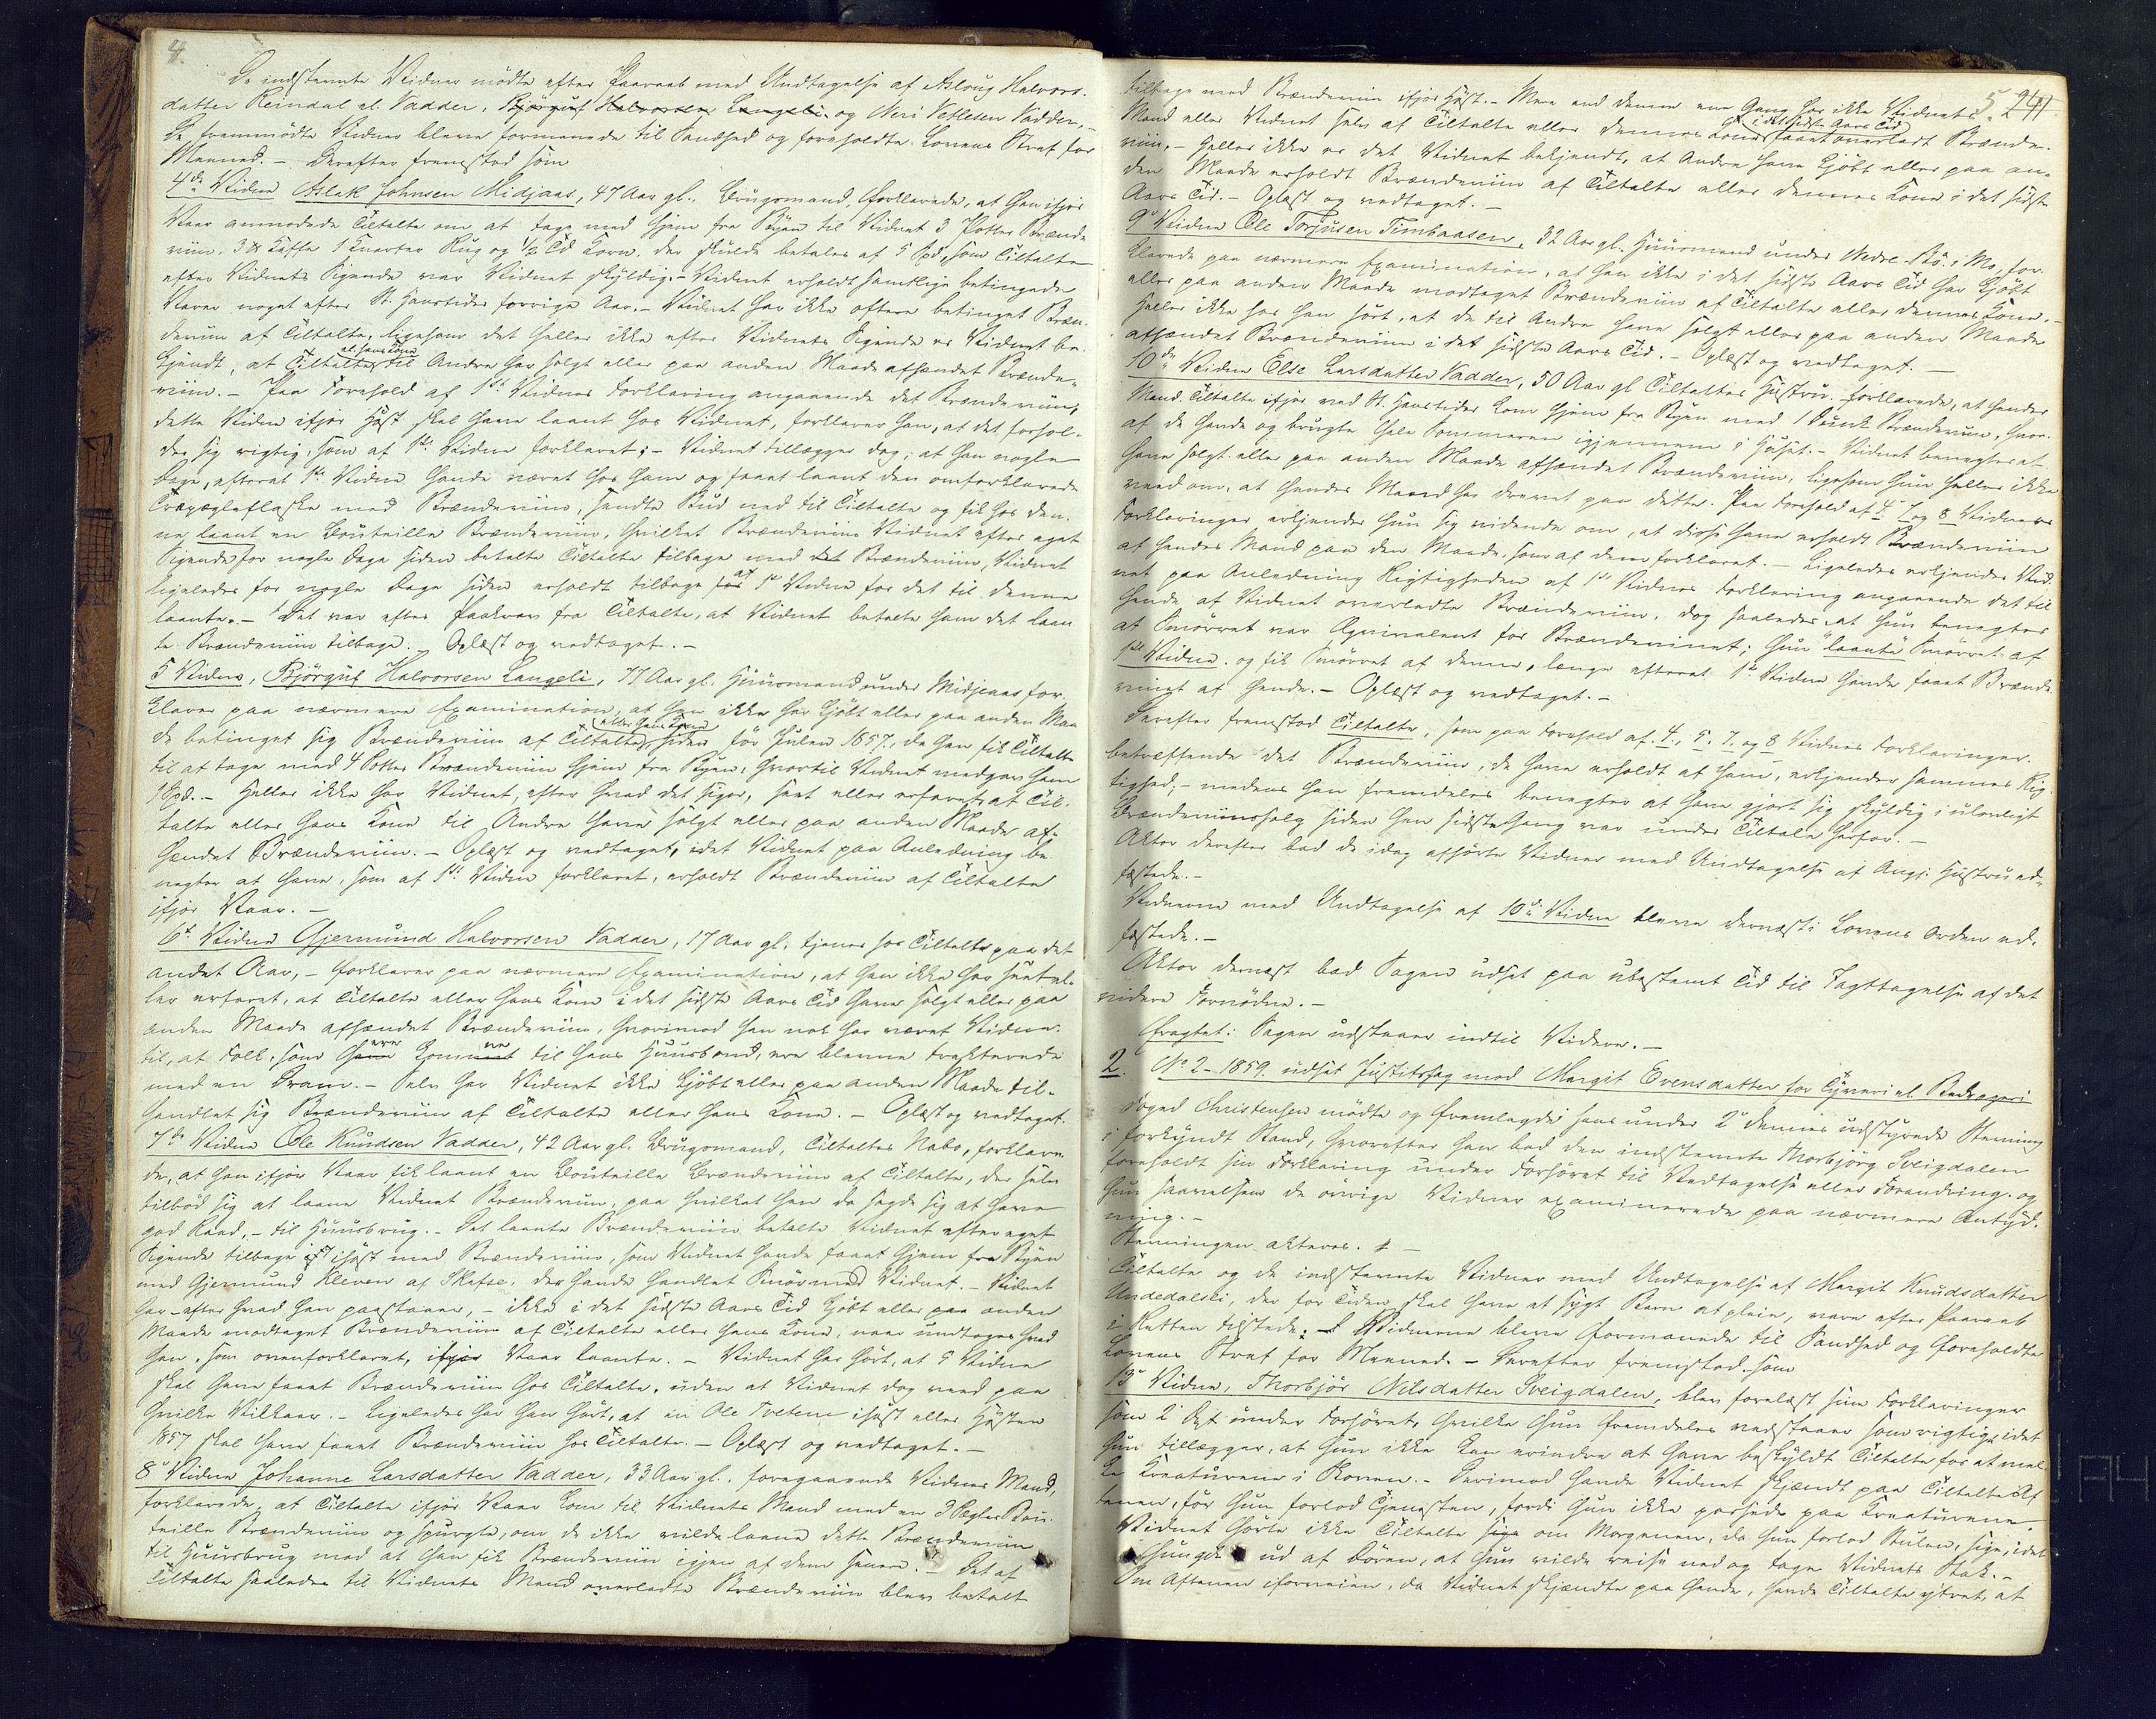 4.
De indstevnte Vidner mødte efter Paaraab med Undtagelse af Aslaug Halvors-
datter Reindal el. Vadder, Bjørgulf Halvorsen Langeli og Neri Vetlesen Vadder,-
De fremmødte Vidner bleve formanede til Sandhed og foreholdte Lovens Straf for
Meened. - Derefter fremstod som
4de Vidne Aslak Johnsen Midjaas, 47 Aar gl. Brugsmand, forklarede, at han ifjor
Vaar anmodede Tiltalte om at tage med hjem fra Byen til Vidnet 3 Potter Brænde-
viin, 3 ℔ Kaffe 1 Qvarter Rug og 1/2 Td Korn, der skulde betales af 5 Spd, som Tiltalte
efter Vidnets Sigende var Vidnet skyldig. - Vidnet erholdt samtlige betingede
Varer noget efter St. Hanstider forrige Aar. - Vidnet har ikke oftere betinget Bræn-
deviin af Tiltalte, ligesom det heller ikke efter Vidnets Sigende er Vidnet be-
kjendt, at Tiltalte el. hans Kone til Andre har solgt eller paa anden Maade afhændet Brænde-
viin. - Paa Forehold af 1ste Vidnes Forklaring angaaende det Brændeviin,
dette Vidne ifjor Høst skal have laant hos Vidnet, forklarer han, at det forhol-
der sig rigtig, som af 1ste Vidne forklaret; - Vidnet tillægger dog, at han nogle
Dage, efterat 1ste Vidne havde været hos ham og faaet laant den omforklarede
Trepægleflaske med Brændeviin, sendte Bud ned til Tiltalte og fik hos den-
ne laant en Bouteille Brændeviin, hvilket Brændeviin Vidnet efter eget
Sigende for nogle Dage siden betalte Tiltalte tilbage med det Brændeviin, Vidnet
ligeledes for nogle Dage siden erholdt tilbage for af 1ste Vidne for det til denne
laante. - Det var efter Paakrav fra Tiltalte, at Vidnet betalte ham det laan-
te Brændeviin tilbage. - Oplæst og vedtaget. -
5 Vidne, Bjørgulf Halvorsen Langeli, 77 Aar gl. Huusmand under Midjaas for-
klarer paa nærmere Examination, at han ikke har kjøbt eller paa anden Maa-
de betinget sig Brændeviin af Tiltalte eller hans Kone siden før Julen 1857, da han fik Tiltalte
til at tage med 4 Potter Brændeviin hjem fra Byen, hvortil Vidnet medgav ham
1 Spd. - Heller ikke har Vidnet, efter hvad det siger, seet eller erfaret, at Til-
talte eller hans Kone til Andre have solgt eller paa anden Maade af-
hændet Brændeviin. - Oplæst og vedtaget, idet Vidnet paa Anledning be-
negter at have, som af 1ste Vidne forklaret, erholdt Brændeviin af Tiltalte
ifjor Vaar. -
6te Vidne Gjermund Halvorsen Vadder, 17 Aar gl. tjener hos Tiltalte paa det
andet Aar, - forklarer paa nærmere Examination, at han ikke har hørt el-
ler erfaret, at Tiltalte eller hans Kone i det sidste Aars Tid have solgt eller paa
anden Maade afhændet Brændeviin, hvorimod han nok har været Vidne
til, at Folk, som have ere kommet ne til hans Huusbond, ere blevne trakterede
med en Dram. - Selv har Vidnet ikke kjøbt eller paa anden Maade til-
handlet sig Brændeviin af Tiltalte eller hans Kone. - Oplæst og vedtaget.
7de Vidne Ole Knudsen Vadder, 42 Aar gl. Brugsmand, Tiltaltes Nabo, forklare-
de, at han ifjor Vaar fik laant en Bouteille Brændeviin af Tiltalte, der selv
tilbød sig at laane Vidnet Brændeviin, paa hvilket han da sagde sig at have
god Raad, - til Huusbrug. - Det laante Brændeviin betalte Vidnet efter eget
Sigende tilbage ihøst med Brændeviin, som Vidnet havde faaet hjem fra Byen
med Gjermund Kleven af Skafse, der havde handlet Smør med Vidnet. - Vidnet
har - efter hvad han paastaaer, - ikke i det sidste Aars Tid kjøbt eller paa anden
Maade modtaget Brændeviin af Tiltalte eller hans Kone, naar undtages hvad
han, som ovenforklaret, ifjor Vaar laante. - Vidnet har hørt, at 5 Vidne
skal have faaet Brændeviin hos Tiltalte, uden at Vidnet dog veed paa
hvilke Vilkaar. - Ligeledes har han hørt, at en Ole Tveten ihøst eller Høsten
1857 skal have faaet Brændeviin hos Tiltalte. - Oplæst og vedtaget. -
8de Vidne Johanne Larsdatter Vadder, 33 Aar gl. foregaaende Vidnes Mand,
forklarede, at Tiltalte ifjor Vaar kom til Vidnets Mand med en 3 Pægles Bou-
teille Brændeviin og spurgte, om de ikke vilde laane dette Brændeviin
til Huusbrug mod at han fik Brændeviin igjen af dem senere. - Det af
Tiltalte saaledes til Vidnets Mand overladte Brændeviin blev betalt
5. 241
tilbage med Brændeviin ifjor Høst. - Mere end denne ene Gang har ikke Vidnets
Mand eller Vidnet selv af Tiltalte eller dennes Kone i det sidste Aars Tid faaet overladt Brænde-
viin. - Heller ikke er det Vidnet bekjendt, at Andre have kjøbt eller paa an-
den Maade erholdt Brændeviin af Tiltalte eller dennes Kone i det sidste
Aars Tid. - Oplæst og vedtaget. -
9de Vidne Ole Torjusen Timbaasen, 32 Aar gl. Huusmand under Nedre-Bø i Mo, for-
klarede paa nærmere Examination, at han ikke i det sidste Aars Tid har kjøbt
eller paa anden Maade modtaget Brændeviin af Tiltalte eller dennes Kone. -
Heller ikke har han hørt, at de til Andre have solgt eller paa anden Maade
afhændet Brændeviin i det sidste Aars Tid. - Oplæst og vedtaget. -
10de Vidne Else Larsdatter Vadder, 50 Aar gl. Tiltaltes Hustru, forklarede, at hendes
Mand Tiltalte ifjor ved St. Hanstider kom hjem fra Byen med 1 Dunk Brændeviin, hvor-
af de havde og brugte hele Sommeren igjennem i Huset. - Vidnet benegter at
have solgt eller paa anden Maade afhændet Brændeviin, ligesom hun heller ikke
veed om, at hendes Mand har drevet paa dette. Paa Forehold af 4, 7 og 8 Vidners
Forklaringer erkjender hun sig vidende om, at disse have erholdt Brændeviin
af hendes Mand paa den Maade, som af dem forklaret. - Ligeledes erkjender Vid-
net paa Anledning Rigtigheden af 1ste Vidnes Forklaring angaaende det til
hende af Vidnet overladte Brændeviin, dog saaledes at hun benegter
at Smørret var Æqvivalent for Brændevinet; hun "laante" Smørret af
1ste Vidne, og fik Smørret af denne, længe efterat 1ste Vidne havde faaet Brænde-
vinet af hende. - Oplæst og vedtaget. -
Derefter fremstod Tiltalte, som paa Forehold af 4, 5, 7, og 8 Vidnes Forklaringer
betræffende det Brændeviin, de have erholdt af ham, erkjender sammes Rig-
tighed; - medens han fremdeles benegter at have gjort sig skyldig i ulovligt
Brændeviinssalg siden han sidste Gang var under Tiltale herfor. -
Aktor derefter bad de idag afhørte Vidner med Undtagelse af Angs. Hustru ed-
fæstede. -
Vidnerne med Undtagelse af 10de Vidne bleve dernæst i Lovens Orden ed-
fæstede. -
Aktor dernæst bad Sagen udsat paa ubestemt Tid til Iagttagelse af det
videre Fornødne. -
Eragtet: Sagen udstaaer indtil Videre. -
2. No 2 - 1859. udsat Justitssag mod Margit Evensdatter for Tyveri el. Bedrageri
Foged Christensen mødte og fremlagde sin under 2 dennes udstyrede Stevning
i forkyndt Stand, hvorefter han bad den indstevnte Thorbjørg Sveigdalen
foreholdt sin Forklaring under Forhøret til Vedtagelse eller Forandring og
hun saavelsom de øvrige Vidner examinerede paa nærmere Antyd-
ning. -
Stevningen akteres. -
Tiltalte og de indstevnte Vidner med Undtagelse af Margit Knudsdatter
Undedalslii, der for Tiden skal have et sygt Barn at pleie, vare efter Paaraab
i Retten tilstede. - Vidnerne bleve formanede til Sandhed og foreholdte
Lovens Straf for Meened. - Derefter fremstod som
13de Vidne, Thorbjør Nilsdatter Sveigdalen, blev forelæst sine Forklaringer
som 2 Dpt under Forhøret, hvilke hun fremdeles vedstaaer som rigtige, idet
hun tillægger, at hun ikke kan erindre at have beskyldt Tiltalte for at mel-
ke Kreaturene i Skoven. - Derimod havde Vidnet skjændt paa Tiltalte Af-
tenen, før hun forlod Tjenesten, fordi hun ikke passede paa Kreaturene.
Vidnet hørte ikke Tiltalte sige om Morgenen, da hun forlod Stulen, sige, idet
hun gik ud af Døren, at hun vilde reise ned og tage Vidnets Stak. -
Om Aftenen iforveien, da Vidnet skjændte paa hende, havde Tiltalte ytret, at